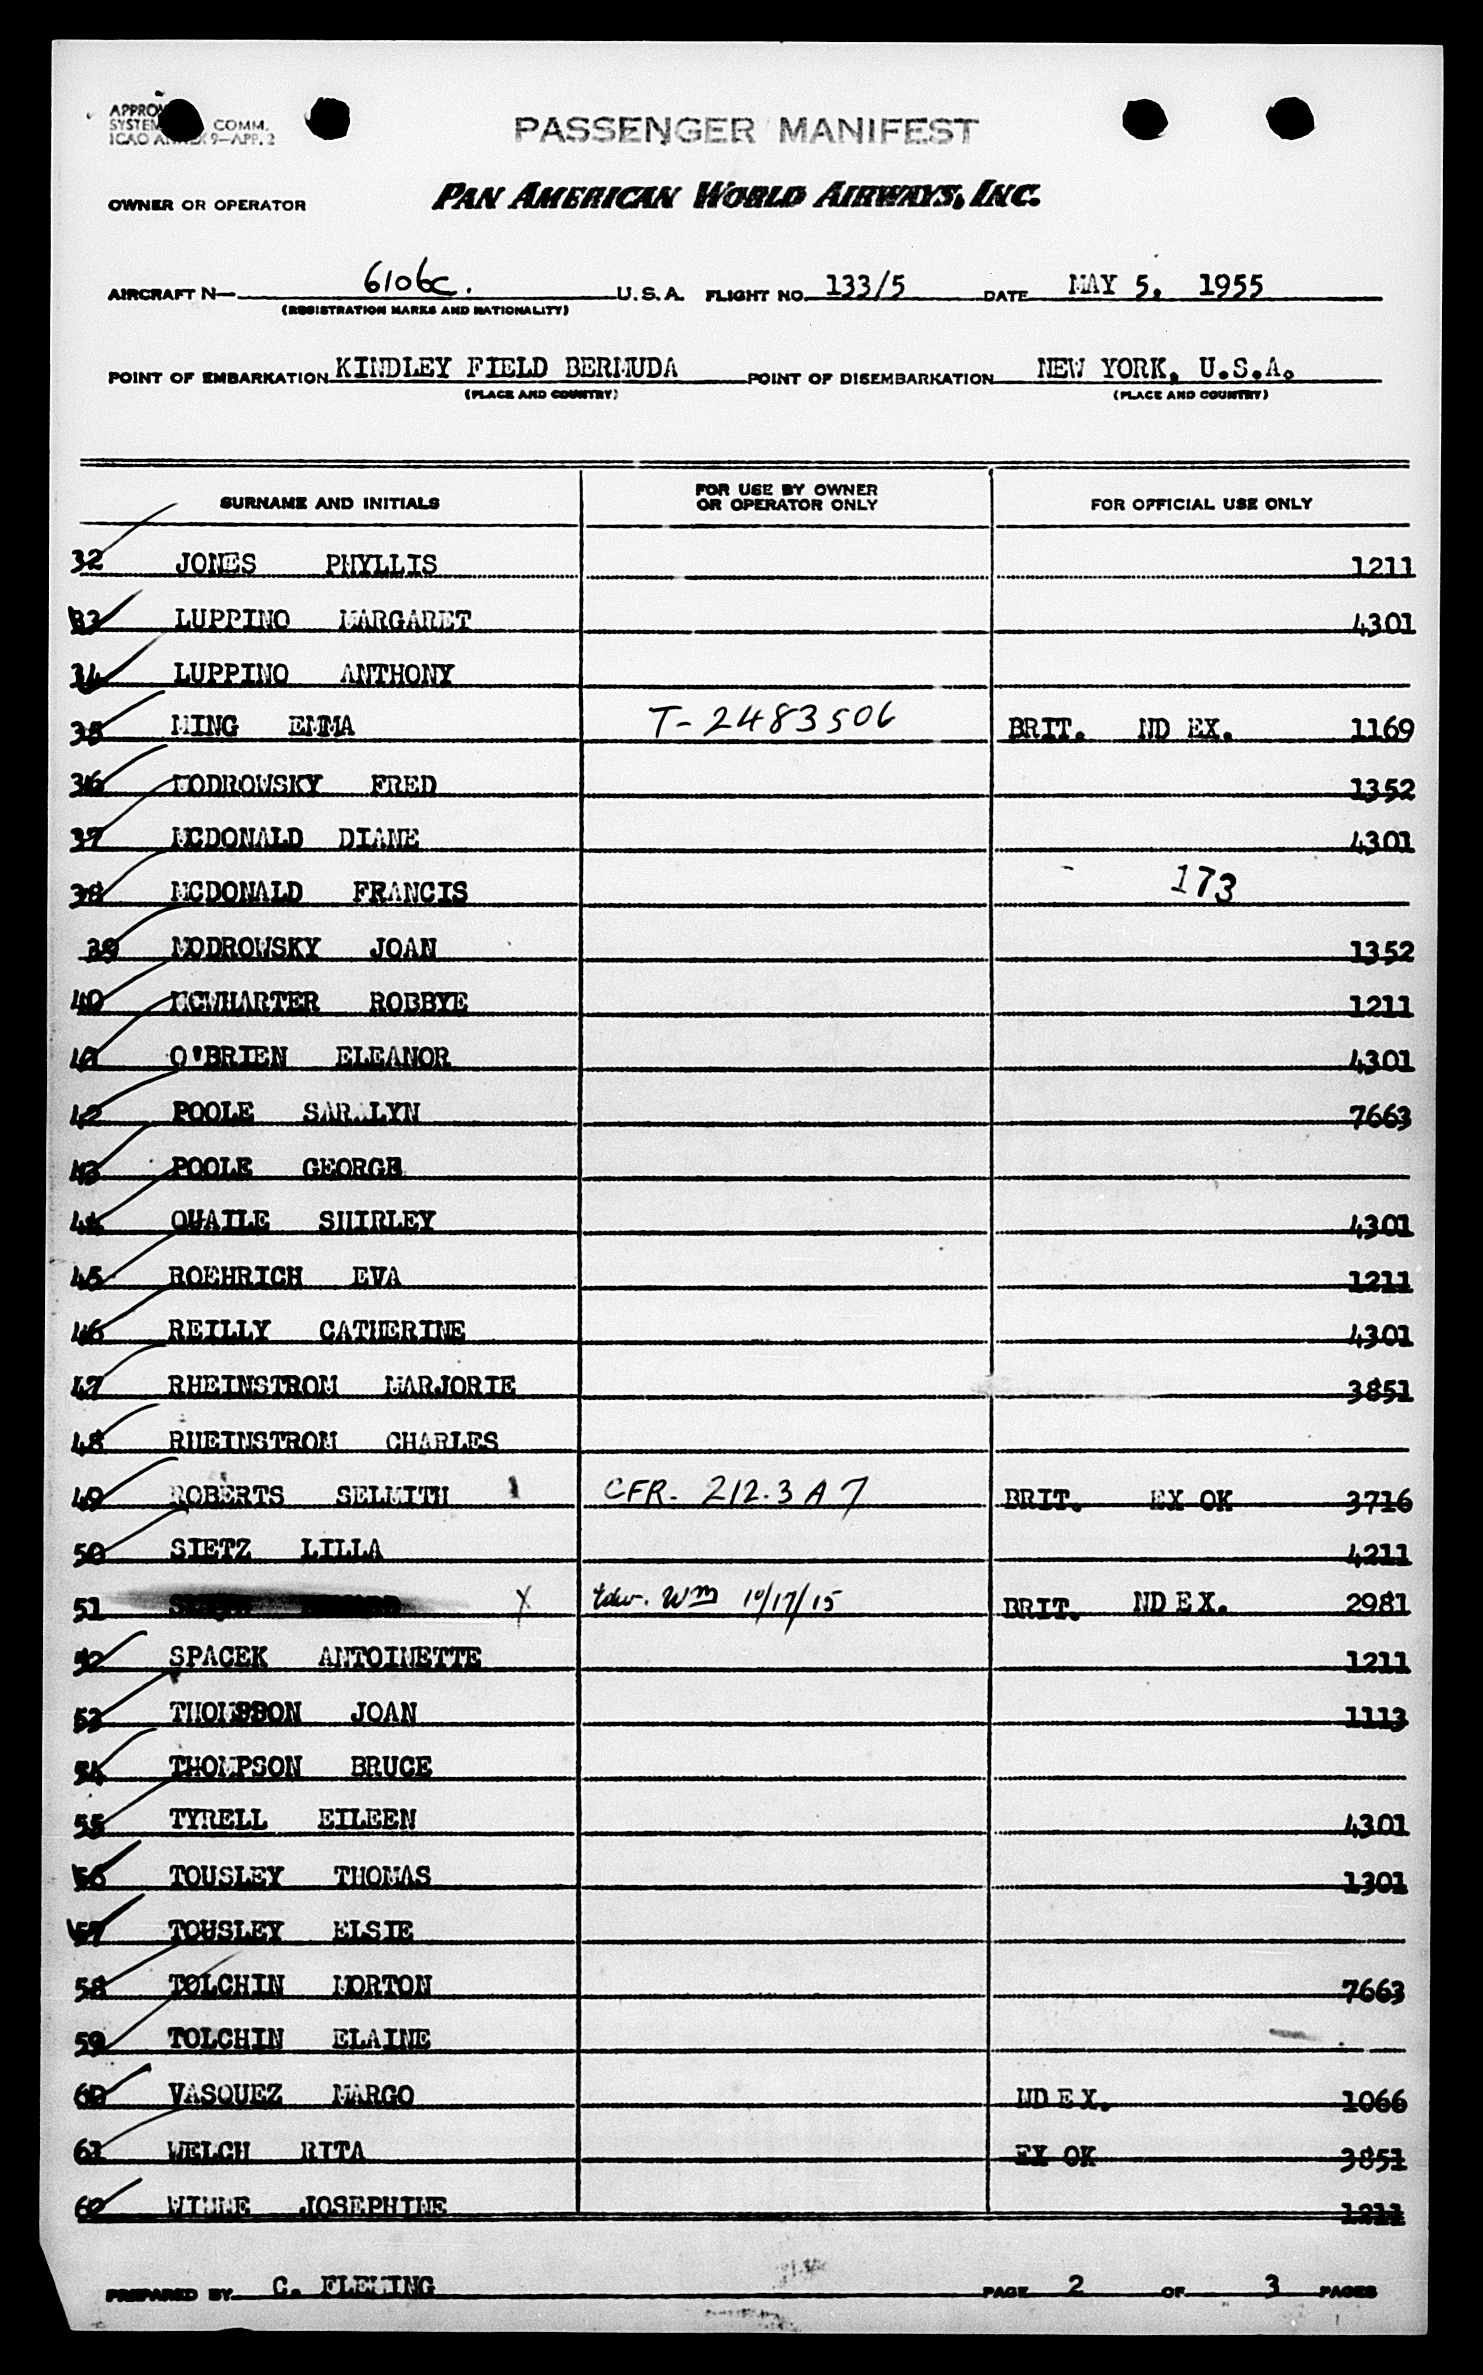 APPROV
SYSTEM COMM.
ICAO ANNEX 9—APP. 2
PASSENGER MANIFEST
OWNER OR OPERATOR PAN AMERICAN WORLD AIRWAYS, INC.
AIRCRAFT N— 6106C. U.S.A. FLIGHT NO. 133/5 DATE MAY 5, 1955
(REGISTRATION MARKS AND NATIONALITY)
POINT OF EMBARKATION KINDLEY FIELD BERMUDA POINT OF DISEMBARKATION NEW YORK, U.S.A.
(PLACE AND COUNTRY) (PLACE AND COUNTRY)
SURNAME AND INITIALS FOR USE BY OWNER OR OPERATOR ONLY FOR OFFICIAL USE ONLY
32 JONES PHYLLIS 1211
33 LUPPINO MARGARET 4301
34 LUPPINO ANTHONY
35 MING EMMA T-2483506 BRIT. ND EX. 1169
36 MODROWSKY FRED 1352
37 MCDONALD DIANE 4301
38 MCDONALD FRANCIS 173
39 MODROWSKY JOAN 1352
40 MCWHARTER ROBBYE 1211
41 O'BRIEN ELEANOR 4301
42 POOLE SARALYN 7663
43 POOLE GEORGE
44 QUAILE SHIRLEY 4301
45 ROEHRICH EVA 1211
46 REILLY CATHERINE 4301
47 RHEINSTROM MARJORIE 3851
48 RHEINSTROM CHARLES
49 ROBERTS SELMITH 1 CFR. 212.3 A 7 BRIT. EX OK 3716
50 SIETZ LILLA 4211
51 X Wm 10/17/15 BRIT. ND EX. 2981
52 SPACEK ANTOINETTE 1211
53 THOMPSON JOAN 1113
54 THOMPSON BRUCE
55 TYRELL EILEEN 4301
56 TOUSLEY THOMAS 1301
57 TOUSLEY ELSIE
58 TOLCHIN MORTON 7663
59 TOLCHIN ELAINE
60 VASQUEZ MARGO ND EX. 1066
61 WELCH RITA EX OK 3851
62 JOSEPHINE 1211
PREPARED BY C. FLEMING PAGE 2 OF 3 PAGES